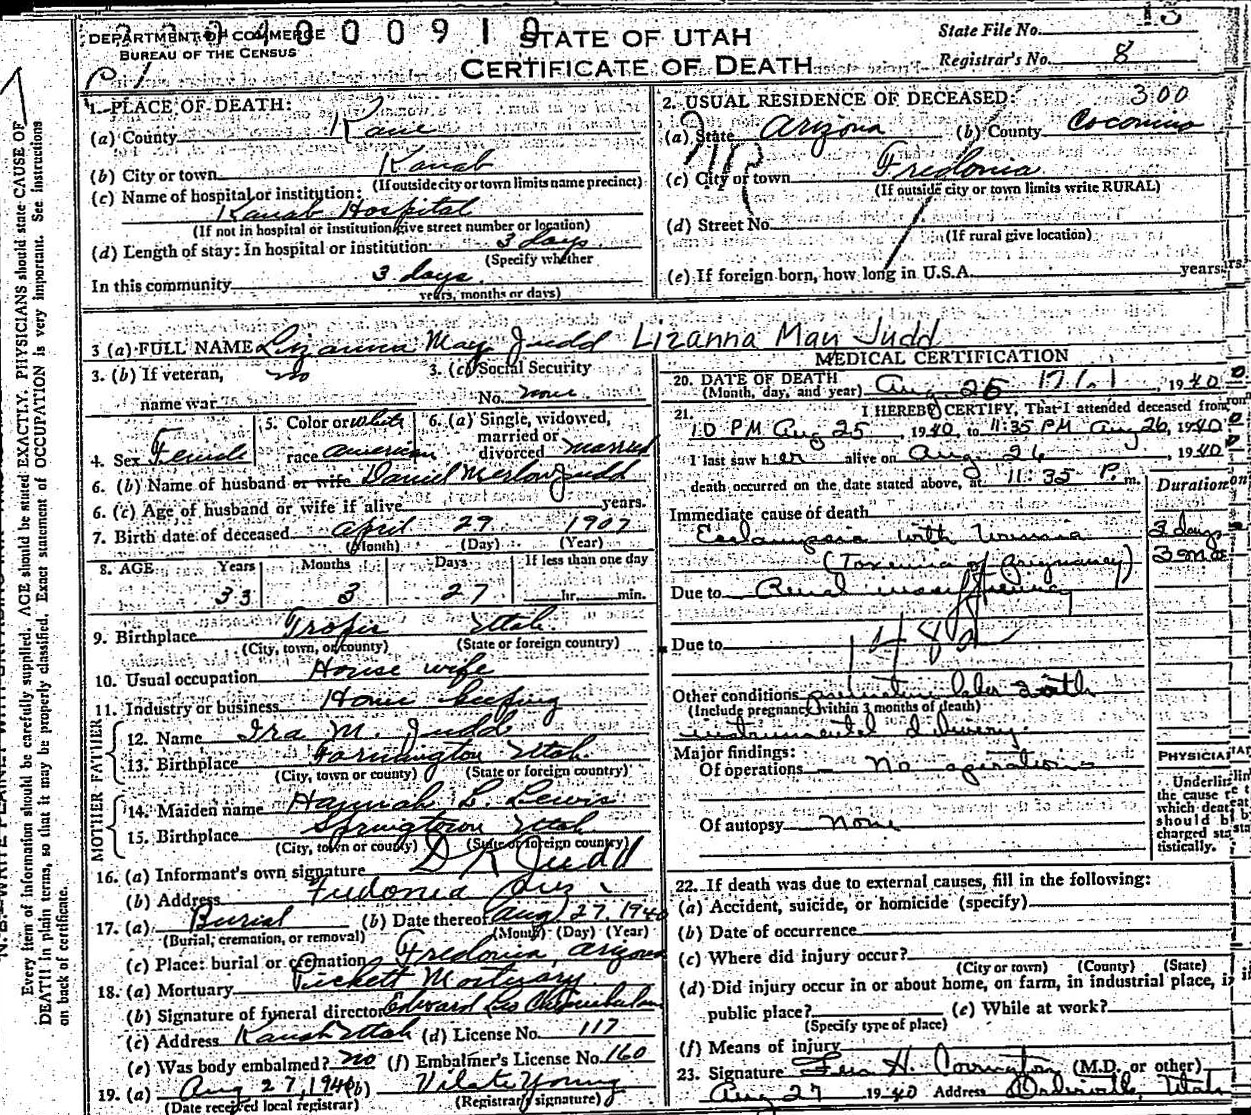 2 3 4 0 0 0 9 1 0
DEPARTMENT OF COMMERCE
BUREAU OF THE CENSUS
STATE OF UTAH
CERTIFICATE OF DEATH
State File No. 13
Registrar's No. 8
1. PLACE OF DEATH:
(a) County Kane
(b) City or town Kanab
(If outside city or town limits name precinct)
(c) Name of hospital or institution:
Kanab Hospital
(If not in hospital or institution give street number or location)
(d) Length of stay: In hospital or institution 3 days
(Specify whether
In this community 3 days
years, months or days)
2. USUAL RESIDENCE OF DECEASED: 300
(a) State Arizona (b) County Coconino
NR
(c) City or town Fredonia
(If outside city or town limits write RURAL)
(d) Street No.
(If rural give location)
(e) If foreign born, how long in U.S.A. years.
3 (a) FULL NAME Lizanna May Judd Lizanna May Judd
3. (b) If veteran, no
name war
3. (c) Social Security
No. none
4. Sex Female
5. Color or white
race american
6. (a) Single, widowed,
married or
divorced married
6. (b) Name of husband or wife Daniel Merlon Judd
6. (c) Age of husband or wife if alive years.
7. Birth date of deceased April 29 1907
(Month) (Day) (Year)
8. AGE Years Months Days If less than one day
33 3 27 hr. min.
9. Birthplace Tropic Utah
(City, town, or county) (State or foreign country)
10. Usual occupation House wife
11. Industry or business Home keeping
FATHER
12. Name Ira M. Judd
13. Birthplace Farmington Utah
(City, town or county) (State or foreign country)
MOTHER
14. Maiden name Hannah L. Lewis
15. Birthplace Springtown Utah
(City, town or county) (State or foreign country)
16. (a) Informant's own signature D K Judd
(b) Address Fredonia Ariz
17. (a) Burial (b) Date thereof Aug 27, 1940
(Burial, cremation, or removal) (Month) (Day) (Year)
(c) Place: burial or cremation Fredonia, Arizona
18. (a) Mortuary Puckett Mortuary
(b) Signature of funeral director Edward
(c) Address Kanab Utah (d) License No. 117
(e) Was body embalmed? No (f) Embalmer's License No. 160
19. (a) Aug 27, 1940 (b) Vilate Young
(Date received local registrar) (Registrar's signature)
MEDICAL CERTIFICATION
20. DATE OF DEATH
(Month, day, and year) Aug. 26, 1940
21. I HEREBY CERTIFY, That I attended deceased from
10 PM Aug 25, 1940, to 11:35 PM Aug 26, 1940
I last saw her alive on Aug. 26, 1940
death occurred on the date stated above, at 11:35 P. m.
Duration
Immediate cause of death
Eclampsia with Uremia 3 days
(Toxemia of Pregnancy) 3 mos
Due to Renal insufficiency
Due to 148a
Other conditions labor with
(Include pregnancy within 3 months of death)
instrumental delivery
Major findings:
Of operations No operations
Of autopsy None
PHYSICIAN
Underline
the cause
which death
should be
charged sta-
tistically.
22. If death was due to external causes, fill in the following:
(a) Accident, suicide, or homicide (specify)
(b) Date of occurrence
(c) Where did injury occur?
(City or town) (County) (State)
(d) Did injury occur in or about home, on farm, in industrial place, in
public place? (e) While at work?
(Specify type of place)
(f) Means of injury
23. Signature H. Covington (M.D. or other)
Aug 27 1940 Address Orderville, Utah
Every item of information should be carefully supplied. AGE should be stated EXACTLY. PHYSICIANS should state CAUSE OF
DEATH in plain terms, so that it may be properly classified. Exact statement of OCCUPATION is very important. See instructions
on back of certificate.